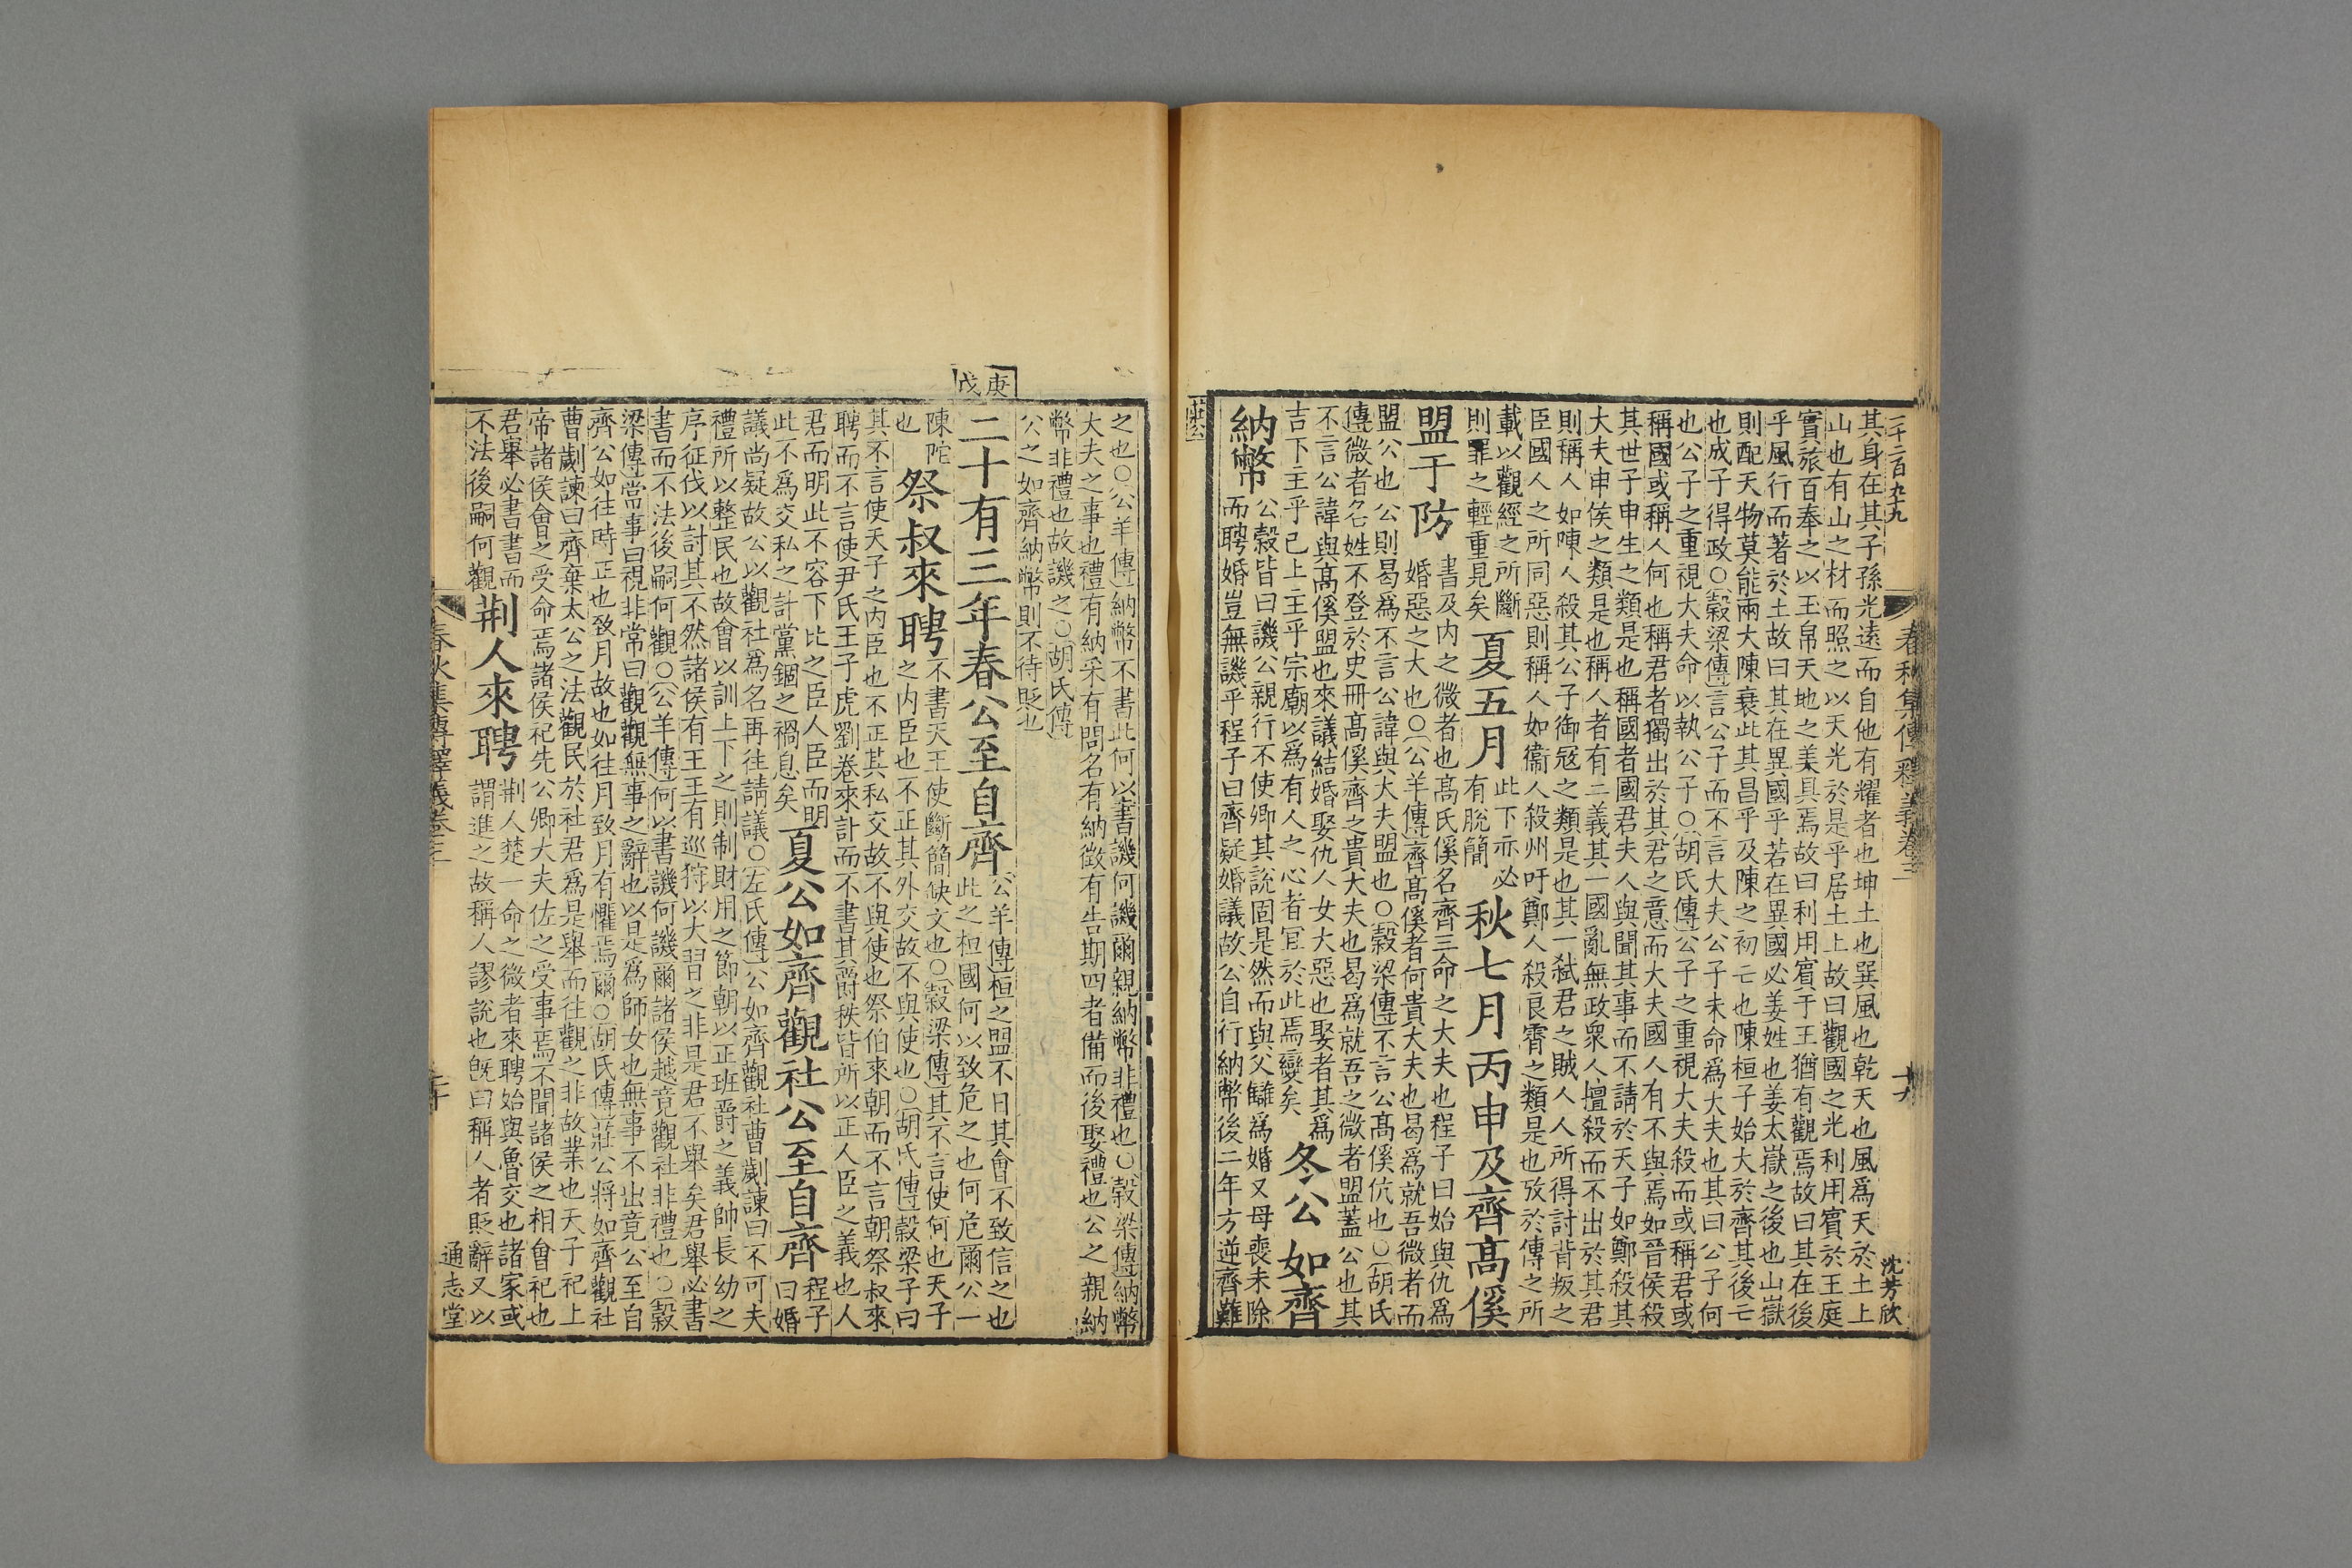 二千二百九十九
春秋集傳釋義卷三
十九
沈芳欣
其身在其子孫光遠而自他有耀者也坤土也巽風也乾天也風爲天於土上
山也有山之材而照之以天光於是乎居土上故曰觀國之光利用賓於王庭
實旅百奉之以玉帛天地之美具焉故曰利用賓于王猶有觀焉故曰其在後
乎風行而著於土故曰其在異國乎若在異國必姜姓也姜太嶽之後也山嶽
則配天物莫能兩大陳衰此其昌乎及陳之初亡也陳桓子始大於齊其後亡
也成子得政○穀梁傳言公子而不言大夫公子未命爲大夫也其曰公子何
也公子之重視大夫命以執公子○胡氏傳公子之重視大夫殺而或稱君或
稱國或稱人何也稱君者獨出於其君之意而大夫國人有不與焉如晉侯殺
其世子申生之類是也稱國者國君夫人與聞其事而不請於天子如鄭殺其
大夫申侯之類是也稱人者有二義其一國亂無政衆人擅殺而不出於其君
則稱人如陳人殺其公子御寇之類是也其一弑君之賊人人所得討背叛之
臣國人之所同惡則稱人如衞人殺州吁鄭人殺良霄之類是也攷於傳之所
載以觀經之所斷
則罪之輕重見矣
夏五月
此下亦必
有脫簡
秋七月丙申及齊高傒
盟于防
書及内之微者也高氏傒名齊三命之大夫也程子曰始與仇爲
婚惡之大也○公羊傳齊高傒者何貴大夫也曷爲就吾微者而
盟公也公則曷爲不言公諱與大夫盟也○穀梁傳不言公高傒伉也○胡氏
傳微者名姓不登於史冊高傒齊之貴大夫也曷爲就吾之微者盟蓋公也其
不言公諱與高傒盟也來議結婚娶仇人女大惡也娶者其爲
吉下主乎已上主乎宗廟以爲有人之心者宜於此焉變矣
冬公如齊
納幣
公穀皆曰譏公親行不使卿其說固是然而與父讎爲婚又母喪未除
而聘婚豈無譏乎程子曰齊疑婚議故公自行納幣後二年方逆齊難
莊公
之也○公羊傳納幣不書此何以書譏何譏爾親納幣非禮也○穀梁傳納幣
大夫之事也禮有納采有問名有納徵有告期四者備而後娶禮也公之親納
幣非禮也故譏之○胡氏傳
公之如齊納幣則不待貶也
庚戌
二十有三年春公至自齊
公羊傳桓之盟不日其會不致信之也
此之桓國何以致危之也何危爾公一
陳陀
也
祭叔來聘
不書天王使斷簡缺文也○穀梁傳其不言使何也天子
之内臣也不正其外交故不與使也○胡氏傳穀梁子曰
其不言使天子之内臣也不正其私交故不與使也祭伯來朝而不言朝祭叔來
聘而不言使尹氏王子虎劉卷來計而不書其爵秩皆所以正人臣之義也人
君而明此不容下比之臣人臣而明
此不爲交私之計黨錮之禍息矣
夏公如齊觀社公至自齊
程子
曰婚
議尚疑故公以觀社爲名再往請議○左氏傳公如齊觀社曹劌諫曰不可夫
禮所以整民也故會以訓上下之則制財用之節朝以正班爵之義帥長幼之
序征伐以討其不然諸侯有王王有巡狩以大習之非是君不舉矣君舉必書
書而不法後嗣何觀○公羊傳何以書譏何譏爾諸侯越竟觀社非禮也○穀
梁傳常事曰視非常曰觀觀無事之辭也以是爲師女也無事不出竟公至自
齊公如往時正也致月故也如往月致月有懼焉爾○胡氏傳莊公將如齊觀社
曹劌諫曰齊棄太公之法觀民於社君爲是舉而往觀之非故業也天子祀上
帝諸侯會之受命焉諸侯祀先公卿大夫佐之受事焉不聞諸侯之相會祀也
君舉必書書而
不法後嗣何觀
荆人來聘
荆人楚一命之微者來聘始與魯交也諸家或
謂進之故稱人謬說也旣曰稱人者貶辭又以
春秋集傳釋義卷三
二十
通志堂